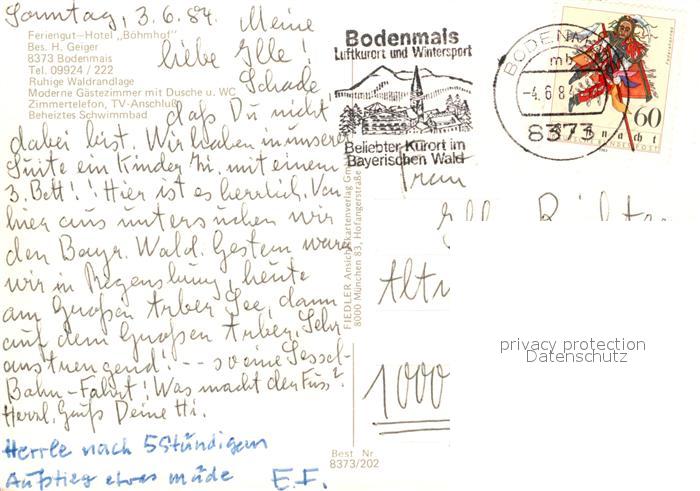 Sonntag, 3.6.84. Meine
liebe Elle!
Schade
daß Du nicht
dabei bist. Wir haben in unserer
Suite ein Kinderzi. mit einem
3. Bett!! Hier ist es herrlich. Von
hier aus untersuchen wir
den Bayr. Wald. Gestern waren
wir in Regensburg, heute
am Großen Arber See, dann
auf dem Großen Arber. Sehr
anstrengend! -- so eine Sessel-
Bahn-Fahrt! Was macht der Fuss?
Herzl. Gruß Deine Hi.
Herrle nach 5 Stündigem
Aufstieg etwas müde E.F.
Feriengut-Hotel „Böhmhof"
Bes. H. Geiger
8373 Bodenmais
Tel. 09924 / 222
Ruhige Waldrandlage
Moderne Gästezimmer mit Dusche u. WC
Zimmertelefon, TV-Anschluß
Beheiztes Schwimmbad
Bodenmais
Luftkurort und Wintersport
Beliebter Kurort im
Bayerischen Wald
BODENMAIS
mb
-4.6.84
8373
60
FIEDLER Ansichtskartenverlag Gm
8000 München 83, Hofangerstraße
Frau
Altr
1000
privacy protection
Datenschutz
Best. Nr
8373/202